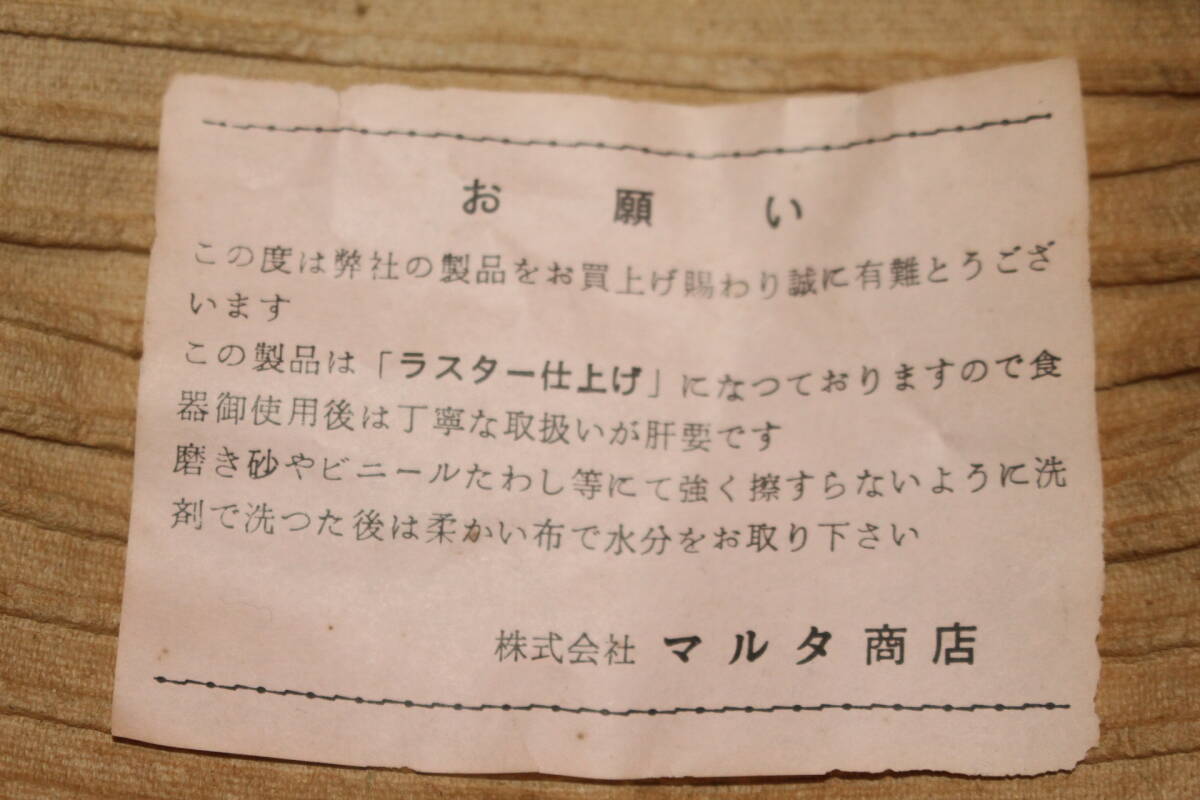 お願い
この度は弊社の製品をお買上げ賜わり誠に有難とうござ
います
この製品は「ラスター仕上げ」になつておりますので食
器御使用後は丁寧な取扱いが肝要です
磨き砂やビニールたわし等にて強く擦すらないように洗
剤で洗つた後は柔かい布で水分をお取り下さい
株式会社 マルタ商店